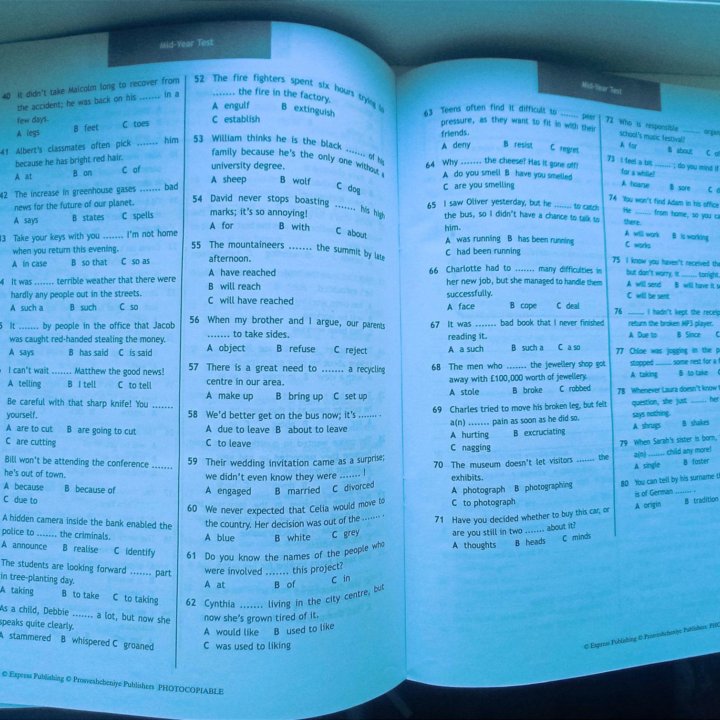 Mid-Year Test
40 It didn't take Malcolm long to recover from
the accident; he was back on his ....... in a
few days.
A legs B feet C toes
41 Albert's classmates often pick ....... him
because he has bright red hair.
A at B on C of
42 The increase in greenhouse gases ....... bad
news for the future of our planet.
A says B states C spells
Take your keys with you ....... I'm not home
when you return this evening.
A in case B so that C so as
It was ....... terrible weather that there were
hardly any people out in the streets.
A such a B such C so
It ....... by people in the office that Jacob
was caught red-handed stealing the money.
A says B has said C is said
I can't wait ....... Matthew the good news!
A telling B I tell C to tell
Be careful with that sharp knife! You .......
yourself.
A are to cut B are going to cut
C are cutting
Bill won't be attending the conference .......
he's out of town.
A because B because of
C due to
A hidden camera inside the bank enabled the
police to ....... the criminals.
A announce B realise C identify
The students are looking forward ....... part
in tree-planting day.
A taking B to take C to taking
As a child, Debbie ....... a lot, but now she
speaks quite clearly.
A stammered B whispered C groaned
52 The fire fighters spent six hours trying to
....... the fire in the factory.
A engulf B extinguish
C establish
53 William thinks he is the black ....... of his
family because he's the only one without a
university degree.
A sheep B wolf C dog
54 David never stops boasting ....... his high
marks; it's so annoying!
A for B with C about
55 The mountaineers ....... the summit by late
afternoon.
A have reached
B will reach
C will have reached
56 When my brother and I argue, our parents
....... to take sides.
A object B refuse C reject
57 There is a great need to ....... a recycling
centre in our area.
A make up B bring up C set up
58 We'd better get on the bus now; it's ....... .
A due to leave B about to leave
C to leave
59 Their wedding invitation came as a surprise;
we didn't even know they were ....... !
A engaged B married C divorced
60 We never expected that Celia would move to
the country. Her decision was out of the ....... .
A blue B white C grey
61 Do you know the names of the people who
were involved ....... this project?
A at B of C in
62 Cynthia ....... living in the city centre, but
now she's grown tired of it.
A would like B used to like
C was used to liking
© Express Publishing © Prosveshcheniye Publishers PHOTOCOPIABLE
Mid-Year Test
63 Teens often find it difficult to ....... peer
pressure, as they want to fit in with their
friends.
A deny B resist C regret
64 Why ....... the cheese? Has it gone off?
A do you smell B have you smelled
C are you smelling
65 I saw Oliver yesterday, but he ....... to catch
the bus, so I didn't have a chance to talk to
him.
A was running B has been running
C had been running
66 Charlotte had to ....... many difficulties in
her new job, but she managed to handle them
successfully.
A face B cope C deal
67 It was ....... bad book that I never finished
reading it.
A a such B such a C a so
68 The men who ....... the jewellery shop got
away with £100,000 worth of jewellery.
A stole B broke C robbed
69 Charles tried to move his broken leg, but felt
a(n) ....... pain as soon as he did so.
A hurting B excruciating
C nagging
70 The museum doesn't let visitors ....... the
exhibits.
A photograph B photographing
C to photograph
71 Have you decided whether to buy this car, or
are you still in two ....... about it?
A thoughts B heads C minds
72 Who is responsible .......
school's music festival?
A for B about C
73 I feel a bit ....... ; do you mind if
for a while?
A hoarse B sore C
74 You won't find Adam in his office
He ....... from home, so you
there.
A will work B is working
C works
75 I know you haven't received the
but don't worry, it ....... tonight.
A will send B will have
C will be sent
76 ....... I hadn't kept the
return the broken MP3 player.
A Due to B Since C
77 Chloe was jogging in the
stopped ....... some rest for a
A taking B to take
78 Whenever Laura doesn't know
question, she just ....... her
says nothing.
A shrugs B shakes
79 When Sarah's sister is born,
a(n) ....... child any more!
A single B foster
80 You can tell by his surname
is of German ....... .
A origin B tradition
© Express Publishing © Prosveshcheniye Publishers